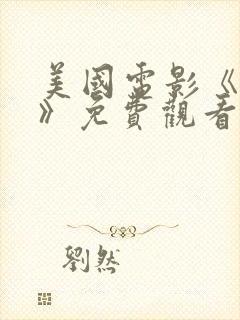 美國電影《
》免費觀看
劉然